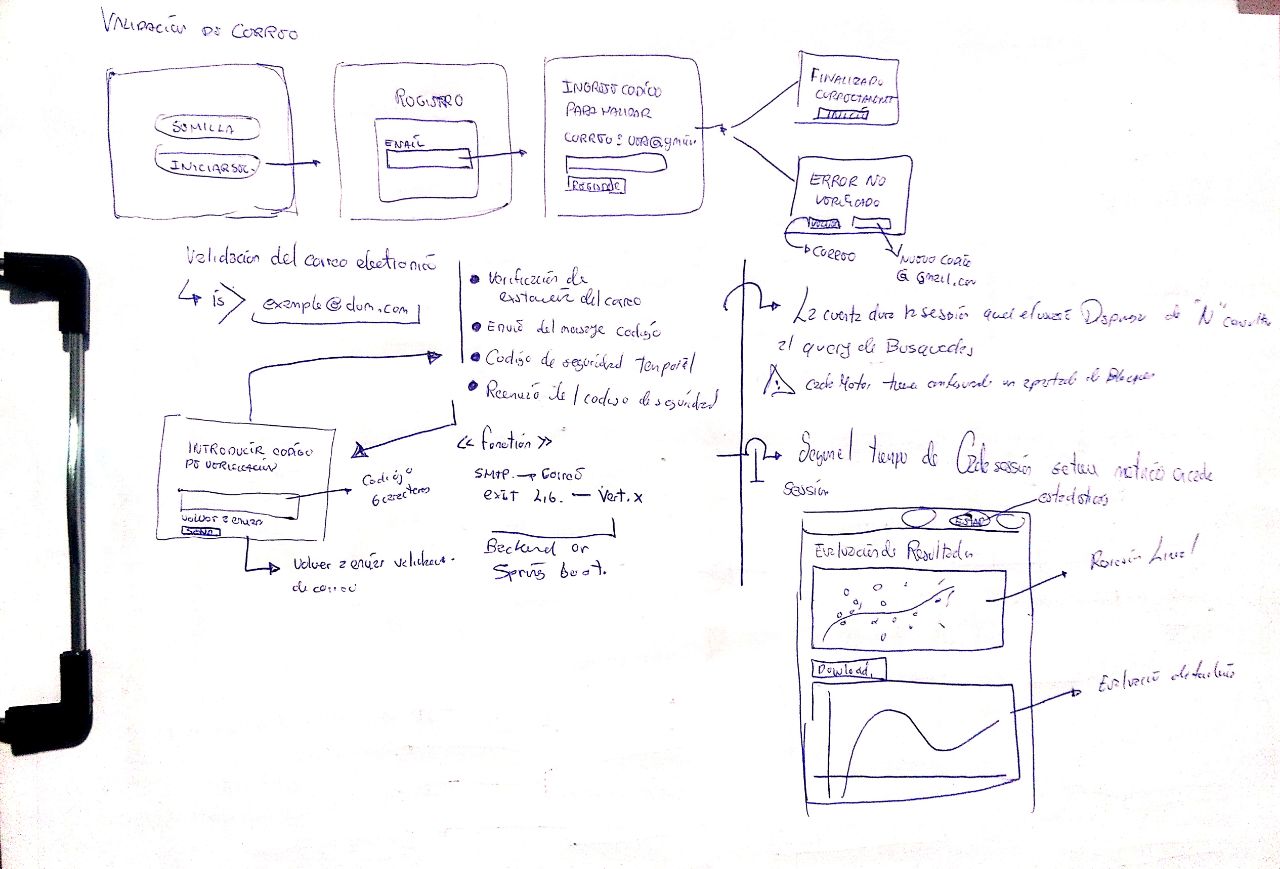 VALIDACIÓN DE CORREO
SEMILLA
INICIAR SEC.
REGISTRO
EMAIL
INGRESE CODÍGO
PARA VALIDAR
CORREO:
REGISTRAR
FINALIZADO
CORRECTAMENT
INICIO
ERROR NO
VERIFICADO
VOLVER
CORREO
NUEVO
@ gmail.com
Validación del correo electronico
is
example@dom.com
Verificación de
existencia del correo
Envio del mensaje codigo
Codigo de seguridad temporal
Reenvio del codigo de seguridad
INTRODUCIR CODIGO
DE VERIFICACIÓN
volver a enviar
SEND
Codigo
6 caracteres
Volver a enviar
de correo
<< Función >>
SMTP. → Correo
exit Lib. — Vert.x
Backend or
Spring boot.
La cuenta dura la sesión que el usuario Dispone de "N" consultas
al query de Busquedas
Cada Motor tiene configurado un apartado de Bloqueo
Segun el tiempo de Cada sessión
Sessión
estadisticas
ESTAD
Evaluación de Resultados
Regresión Lineal
Download.
Evaluación